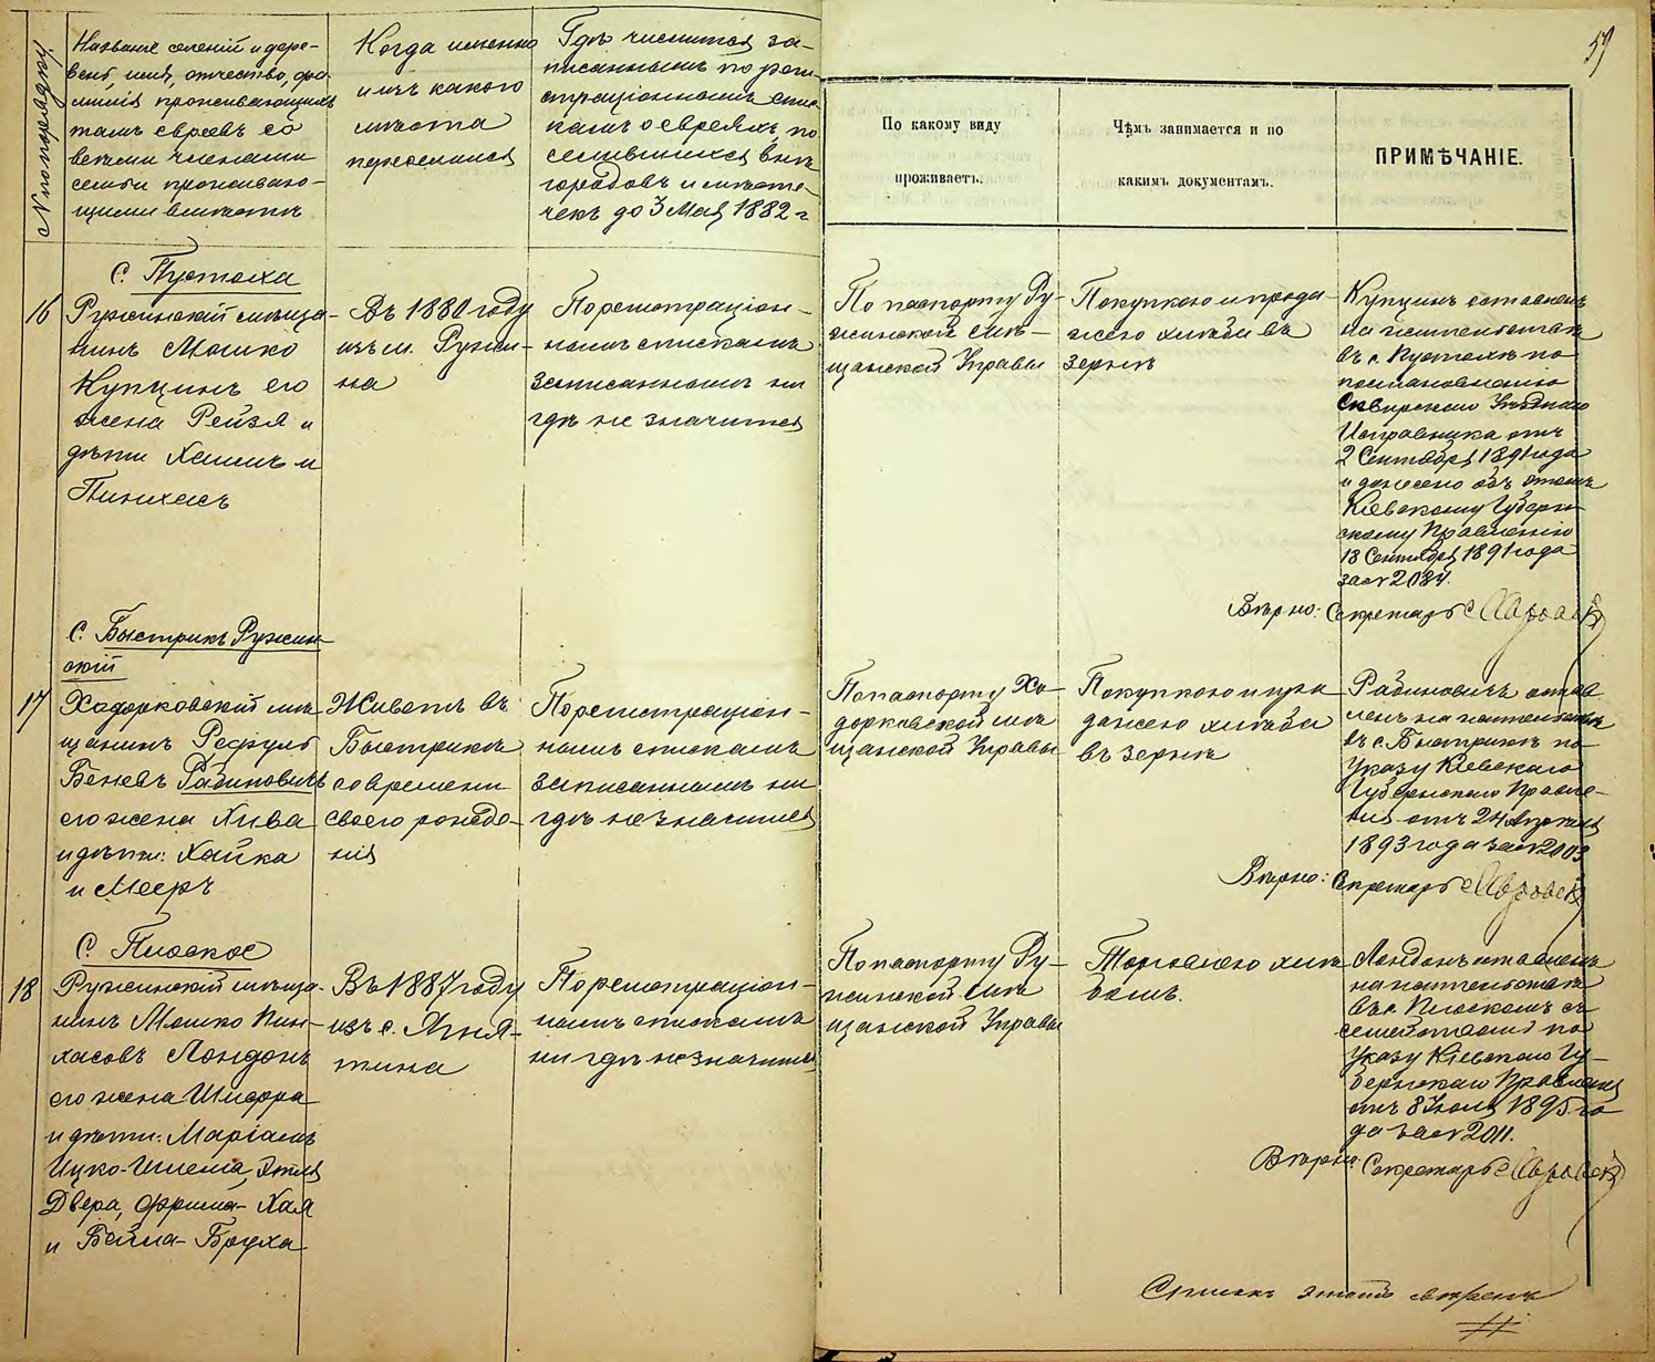 57
№ по порядку
Названіе селеній и дере-
вень, имя, отчество, фа-
милія проживающихъ
тамъ евреевъ со
всеми членами
семьи проживаю-
щими вместѣ
Когда именно
и изъ какого
мѣста
переселился
Гдѣ числится за-
писаннымъ по реги-
страціоннымъ спис-
камъ о евреяхъ, по
селившихся внѣ
городовъ и мѣсте-
чекъ до 3 Мая 1882 г
По какому виду
проживаетъ.
Чѣмъ занимается и по
какимъ документамъ.
ПРИМѢЧАНІЕ.
С. Пустоха
16
Ружинскій мѣща-
нинъ Мошко
Купчинъ его
жена Рейзя и
дѣти Хаимъ и
Пинхасъ
Въ 1880 году
изъ м. Ружи-
на
По регистраціон-
нымъ спискамъ
записаннымъ ни
гдѣ не значится
По паспорту Ру-
жинской Мѣ-
щанской Управы
Покупкою и прода-
жею хлѣба въ
зернѣ
Купчинъ оставленъ
на жительствѣ
въ с. Пустохѣ по
постановленію
Сквирскаго Уѣзднаго
Исправника отъ
2 Сентября 1891 года
и донесено объ этомъ
Кіевскому Губерн-
скому Правленію
18 Сентября 1891 года
за № 2084.
Вѣрно: Секретарь
С. Быстрикъ Ружин-
скій
17
Ходорковскій мѣ-
щанинъ Рефулъ
Беневъ Рабиновичъ
его жена Хива
и дѣти: Хайка
и Мееръ
Живетъ въ
Быстрикѣ
со времени
своего рожде-
нія
По регистраціон-
нымъ спискамъ
записаннымъ ни
гдѣ не значится
По паспорту Хо-
дорковской мѣ
щанской Управы
Покупкою и про
дажею хлѣба
въ зернѣ
Рабиновичъ остав
ленъ на жительствѣ
въ с. Быстрикѣ по
Указу Кіевскаго
Губернскаго Правле-
нія отъ 24 Апрѣля
1893 года за № 2003
Вѣрно: Секретарь
С. Плоское
18
Ружинскій мѣща-
нинъ Мошко Пин-
хасовъ Лондонъ
его жена Шифра
и дѣти: Маріамъ
Ицко-Шлема, Этля
Двера, Фрима-Хая
и Бейла-Бруха
Въ 1887 году
изъ с. Ягня-
тина
По регистраціон-
нымъ спискамъ
ни гдѣ не значится
По паспорту Ру-
жинской Мѣ
щанской Управы
Торговлею хлѣ
бомъ.
Лондонъ оставленъ
на жительствѣ
въ с. Плоскомъ съ
семействомъ по
Указу Кіевскаго Гу-
бернскаго Правленія
отъ 8 Іюля 1895 го
да за № 2011.
Вѣрно: Секретарь
Списокъ этотъ свѣренъ